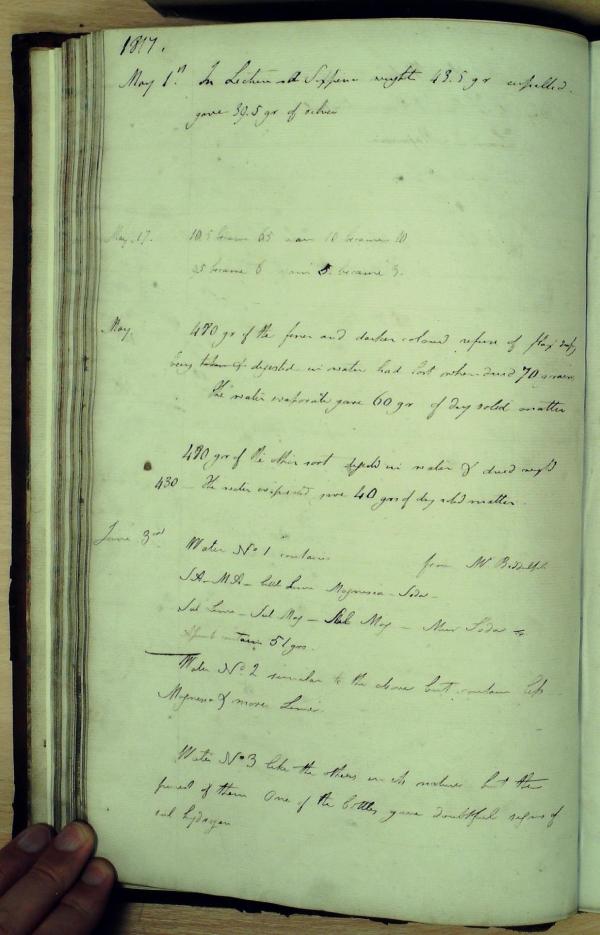 1817.
May 1st. In Lecture A Sixpence weight 43.5 gr cupelled
gave 39.5 gr of silver
May 17. 10.5 became 65 10 became 10
25 became 6 5 became 3.
May 480 gr of the finer and darker coloured refuse of flax
being digested in water had lost when dried 70 grains
The water evaporate gave 60 gr of dry solid matter
480 grs of the other sort in water & dried weighd
430 – The water evaporated gave 40 grs of dry solid matter
June 3rd Water No 1 contains from Mr
S.A – M.A – Lime Magnesia – Soda –
Sul Lime – Sul Mag – Mag – Mur Soda
contain 51 grs.
Water No 2 similar to the above but contains less
Magnesia & more Lime.
Water No 3 like the others in its nature but the
purest of them One of the bottles gave doubtful signs of
sul hydrogen